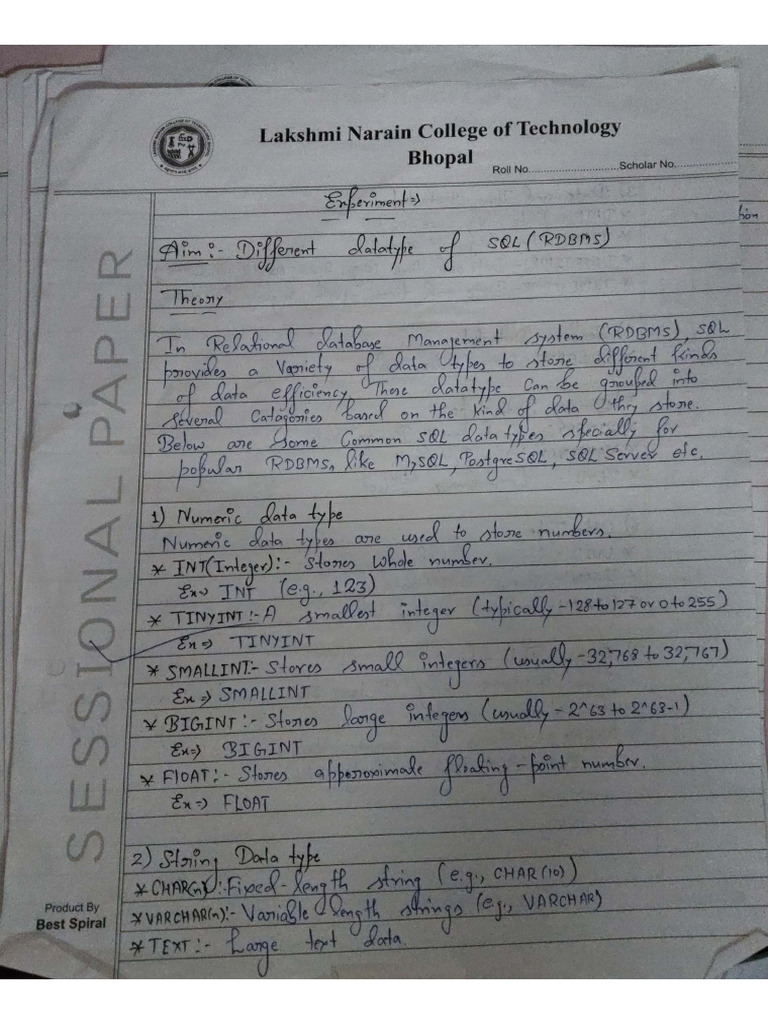 Lakshmi Narain College of Technology
Bhopal
Roll No............................Scholar No..................
Experiment=>
Aim:- Different datatype of SQL (RDBMS)
Theory
In Relational database Management system (RDBMS) SQL
provides a Variety of data types to store different kinds
of data efficiency. These datatype can be grouped into
several Catagories based on the kind of data they store.
Below are some Common SQL data types specially for
popular RDBMS, like MySQL, PostgreSQL, SQL Server etc.
1) Numeric data type
Numeric data types are used to store numbers.
* INT(Integer):- Stores whole number.
Ex=> INT (e.g., 123)
* TINYINT:- A smallest integer (typically -128 to 127 or 0 to 255)
Ex=> TINYINT
* SMALLINT:- Stores small integers (usually -32,768 to 32,767)
Ex=> SMALLINT
* BIGINT:- Stores large integers (usually -2^63 to 2^63-1)
Ex=> BIGINT
* FlOAT:- Stores approximate floating-point number.
Ex=> FLOAT
2) String Data type
* CHAR(n):- Fixed-length string (e.g., CHAR(10))
* VARCHAR(n):- Variable length strings (e.g., VARCHAR)
* TEXT:- Large text data.
SESSIONAL PAPER
Product By
Best Spiral